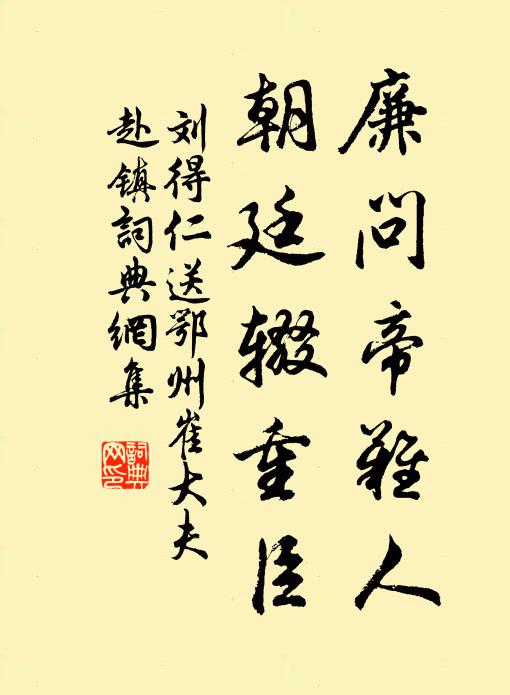 廉问帝难人
朝廷辍重臣
刘得仁送鄂州崔大夫
赴镇詞典網集
詞典
网印